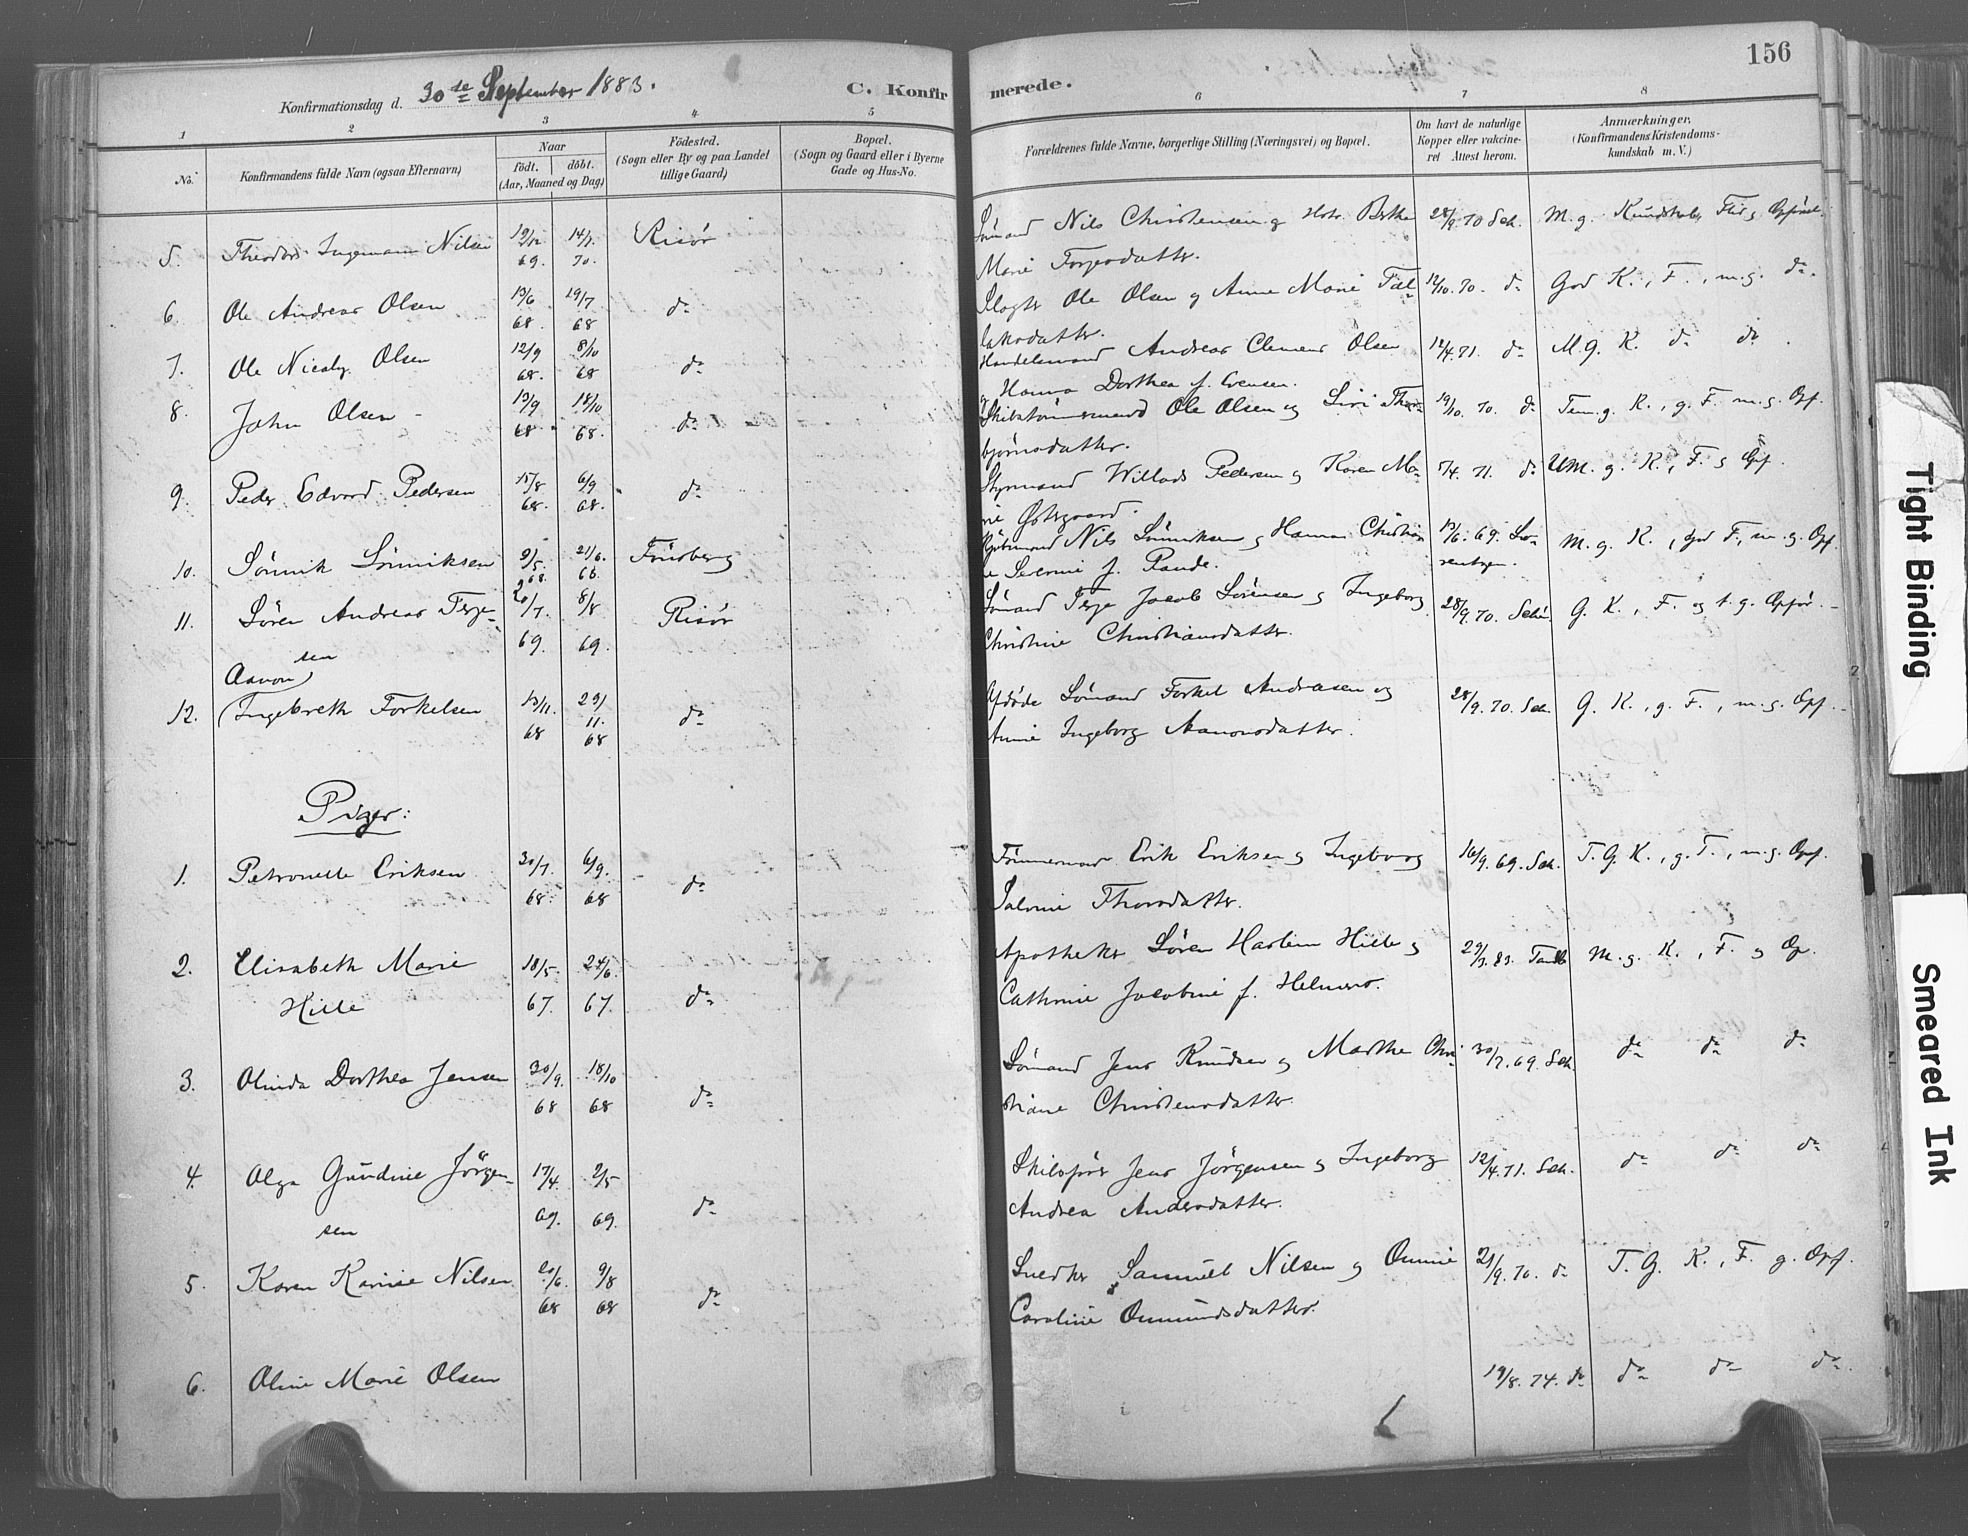 156
Konfirmationsdag d. 30te September 1883.
C. Konfirmerede.
1 2 3 4 5 6 7 8
No.
Konfirmandens fulde Navn (ogsaa Efternavn)
Naar
født. døbt.
(Aar, Maaned og Dag)
Fødested.
(Sogn eller By og paa Landet
tillige Gaard)
Bopæl.
(Sogn og Gaard eller i Byerne
Gade og Hus-No.
Forældrenes fulde Navne, borgerlige Stilling (Næringsvei) og Bopæl.
Om havt de naturlige
Kopper eller vakcine-
ret Attest herom.
Anmærkninger.
(Konfirmandens Kristendoms-
kundskab m. V.)
5. Ingeman Nilsen 19/12 69. 14/7 70. Risør Sømand Nils Christensen og Hstr. Berthe 28/9 70 Sch. M. g. Kundskab, Flid og Opførsel.
Marie Torgersdatter.
6. Ole Andreas Olsen 13/6 68. 19/7 68 do Ole Olsen og Anne Marie 12/10. 70. do God K., F., m. g. do
7. Ole Nicolay Olsen 12/9 68. 8/10 68 do Handelsmand Andreas Clemens Olsen 12/4. 71. do M. g. K. do do
og Hanna Dorthea f. Evensen.
8. John Olsen 13/9 68. 18/10 68. do Skibstømmermand Ole Olsen og Siri Thor- 19/10. 70. do Tem. g. K., g. F. m. g. Opf.
bjørnsdatter.
9. Peder Edvard Pedersen 15/8 68. 6/9 68. do Styrmand Willads Pedersen og Karen Ma- 71. do M. g. K., F. og Opf.
rie Østergaard.
10. Sønnik Sønniksen 9/5 68. 21/6. 68. Tønsberg Nils Sønniksen og Hanna Christia- 13/6. 69. M. g. K., God F., m. g. Opf.
ne Severine f. Paude.
11. Søren Andreas Terje- 20/7 69. 8/8 69. Risør Sømand Terje Jacob Sørensen og Ingeborg 28/9. 70. Sch. G. K., F. og t. g. Opfør.
sen Christine Christiansdatter.
Aanon
12. Ingebreth Torkelsen 13/11. 68 29/11. 68 do Afdøde Sømand Torkel Andreasen og 28/9. 70. Sch. G. K., g. F., m. g. Opf.
Anne Ingeborg Aanonsdatter.
Piger:
1. Petronelle Eriksen 30/7. 68. 6/9. 68 do Tømmermand Erik Eriksen og Ingeborg 16/9. 69. Sch. T. G. K., g. F., m. g. Opf.
Thorsdatter.
2. Elisabeth Marie 18/5. 67. 24/6. 67. do Apotheker Søren Hille og 29/3. 83. M. g. K., F. og Op.
Hille Cathrine Jacobine f. Helmers.
3. Olinda Dorthea Jensen 30/9. 68 18/10 68 do Sømand Jens Knudsen og Marthe Chri- 30/7. 69. Sch. do do do
stiane Christensdatter.
4. Olga Gundine Jørgen- 17/4. 69. 2/5 69. do Skibsfører Jens Jørgensen og Ingeborg 12/4. 71. Sch. do do do
sen Andrea Andersdatter.
5. Karen Karine Nilsen 20/6. 68 9/8 68 do Snedker Samuel Nilsen og Omme 21/9. 70. do T. G. K., F. g. Opf.
Caroline Ommundsdatter.
6. Oline Marie Olsen 19/8. 74. do do do do
Tight Binding
Smeared Ink